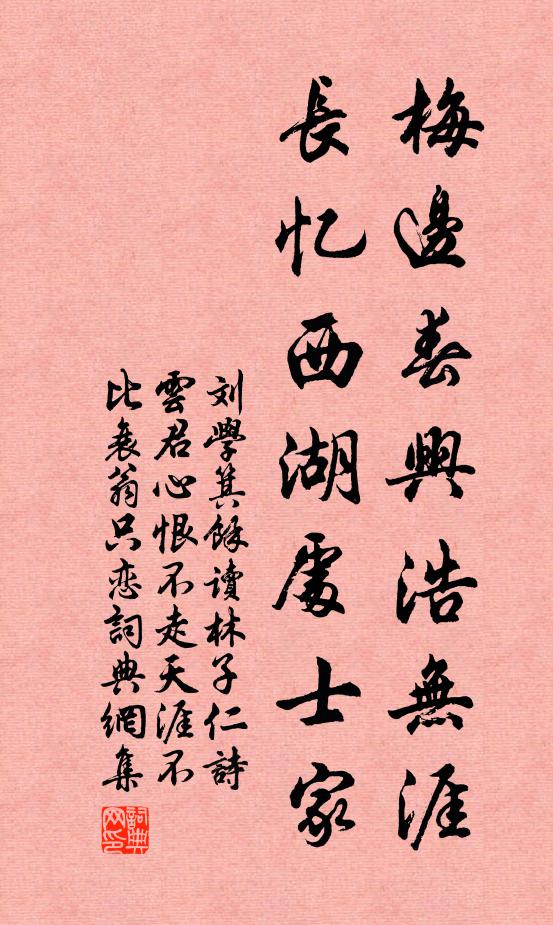 梅邊春興浩無涯
長忆西湖處士家
刘學箕餘讀林子仁詩
雲君心恨不走天涯不
比衰翁只恋詞典網集
詞典网印